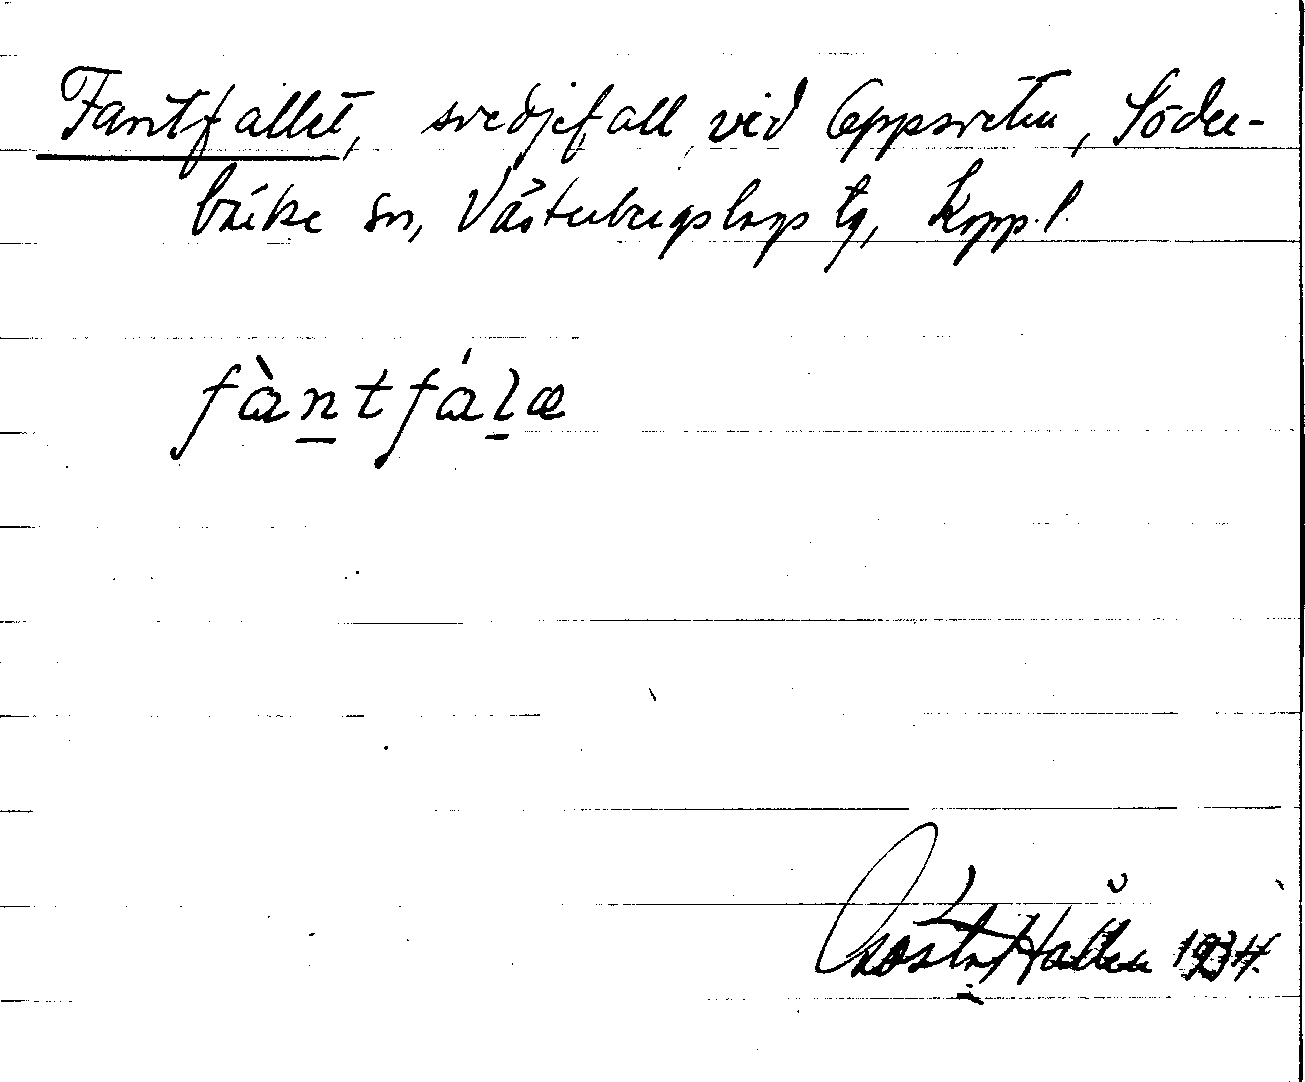 Fantfallet, svedjefall vid Oppsveten, Söder-
bärke sn, Västerbergslags tg, Kopp. l.
fàntfálæ
Gösta Hallén 1934.